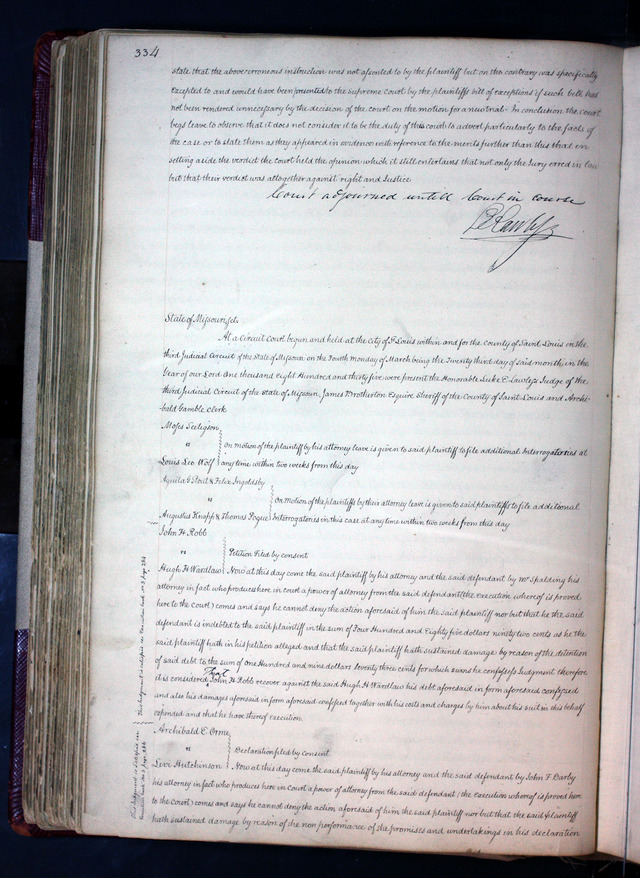 334
state that the above erroneous instruction was not assented to by the plaintiff but on the contrary was specifically
excepted to and would have been presented to the supreme court by the plaintiffs bill of exceptions if such bill had
not been rendered unnecessary by the decision of the court on the motion for a new trial - In conclusion the court
begs leave to observe that it does not consider it to be the duty of this court to advert particularly to the facts of
the case or to state them as they appeared in evidence with reference to the merits further than this that in
setting aside the verdict the court held the opinion which it still entertains that not only the Jury erred in law
but that their verdict was altogether against right and Justice
Court adjourned untill Court in course
State of Missouri, sct.
At a Circuit Court begun and held at the city of St Louis within and for the county of Saint Louis in the
third Judicial Circuit of the State of Missouri on the Fourth monday of March being the Twenty third day of said month, in the
Year of our Lord One thousand Eight Hundred and thirty five were present the Honorable Luke E Lawless Judge of the
third Judicial Circuit of the State of Missouri, James Brotherton Esquire Sheriff of the County of Saint Louis and Archi-
bald Gamble Clerk
Moses Seeligson
vs
On motion of the plaintiff by his attorney leave is given to said plaintiff to file additional Interrogatories at
Louis Leo Wolf any time within two weeks from this day
Aquila G Stout & Felix Ingoldsby
vs
On motion of the plaintiffs by their attorney leave is given to said plaintiffs to file additional
Augustus Knapp & Thomas Pogue Interrogatories in this case at any time within two weeks from this day
John H. Robb
vs Petition Filed by consent
Hugh H Wardlaw Now at this day come the said plaintiff by his attorney and the said defendant by Mr Spalding his
attorney in fact who produces here in court a power of attorney from the said defendant (the execution whereof is proved
here to the Court) comes and says he cannot deny the action aforesaid of him the said plaintiff nor but that he the said
defendant is indebted to the said plaintiff in the sum of Four Hundred and Eighty five dollars ninety two cents as he the
said plaintiff hath in his petition alleged and that the said plaintiff hath sustained damage by reason of the detention
of said debt to the sum of One Hundred and nine dollars seventy three cents for which sums he confesses Judgment therefore
it is considered that John H. Robb recover against the said Hugh H Wardlaw his debt aforesaid in form aforesaid confessed
and also his damages aforesaid in form aforesaid confessed together with his costs and charges by him about his suit in this behalf
expended and that he have thereof execution.
This Judgment is satisfied see Execution book No 3 page 234
Archibald E. Orme
vs Declaration filed by consent
Levi Hutchinson Now at this day come the said plaintiff by his attorney and the said defendant by John F. Darby
his attorney in fact who produces here in Court a power of attorney from the said defendant (the execution whereof is proved here
to the Court) comes and says he cannot deny the action aforesaid of him the said plaintiff nor but that the said plaintiff
hath sustained damage by reason of the non performance of the promises and undertakings in his declaration
This Judgment is satisfied see Execution book No 3 page